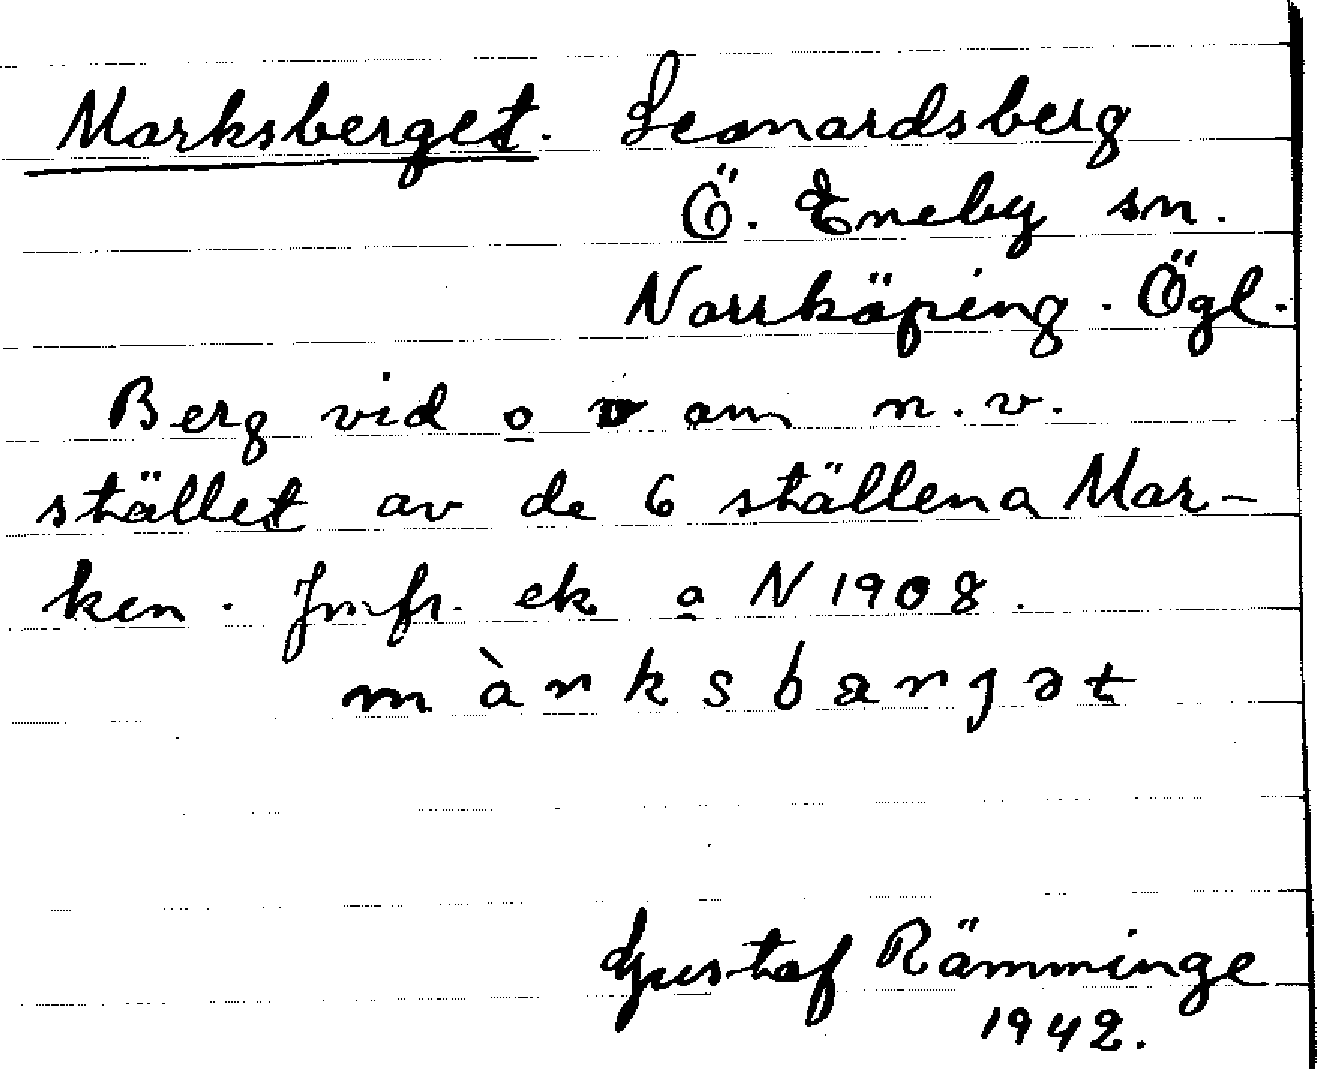 Marksberget. Leonardsberg
Ö. Eneby sn.
Norrköping. Ögl.
Berg vid o v om n.v.
stället av de 6 ställena Mar-
ken. Jmfr. ek a N 1908.
màrksbærjət
Gustaf Rämminge
1942.